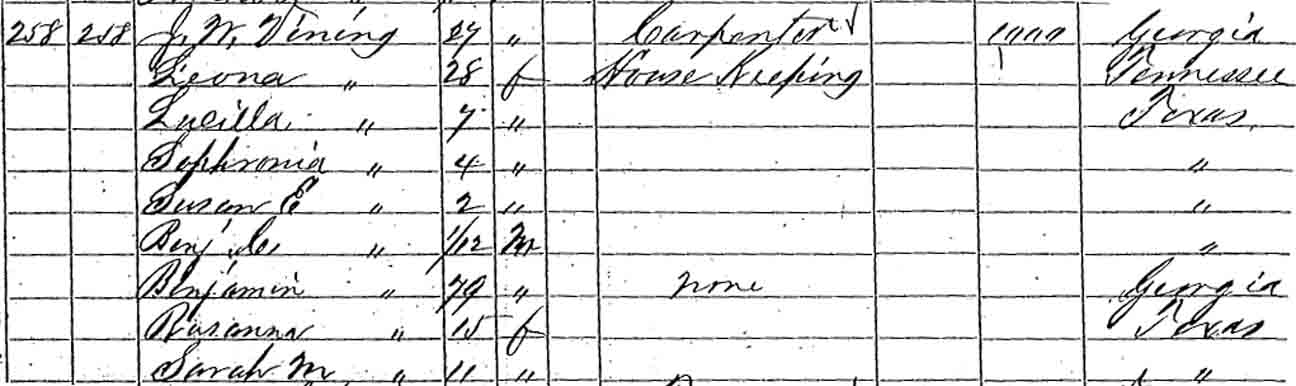 258 258 J. W. Vining 27 " Carpenter 1000 Georgia
Leona " 28 f House Keeping Tennessee
Lucilla " 7 " Texas
Sophronia " 4 " "
Susan E " 2 " "
Benj. C. " 1/12 M "
Benjamin " 79 " none Georgia
Rosanna " 15 f Texas
Sarah M " 11 " "